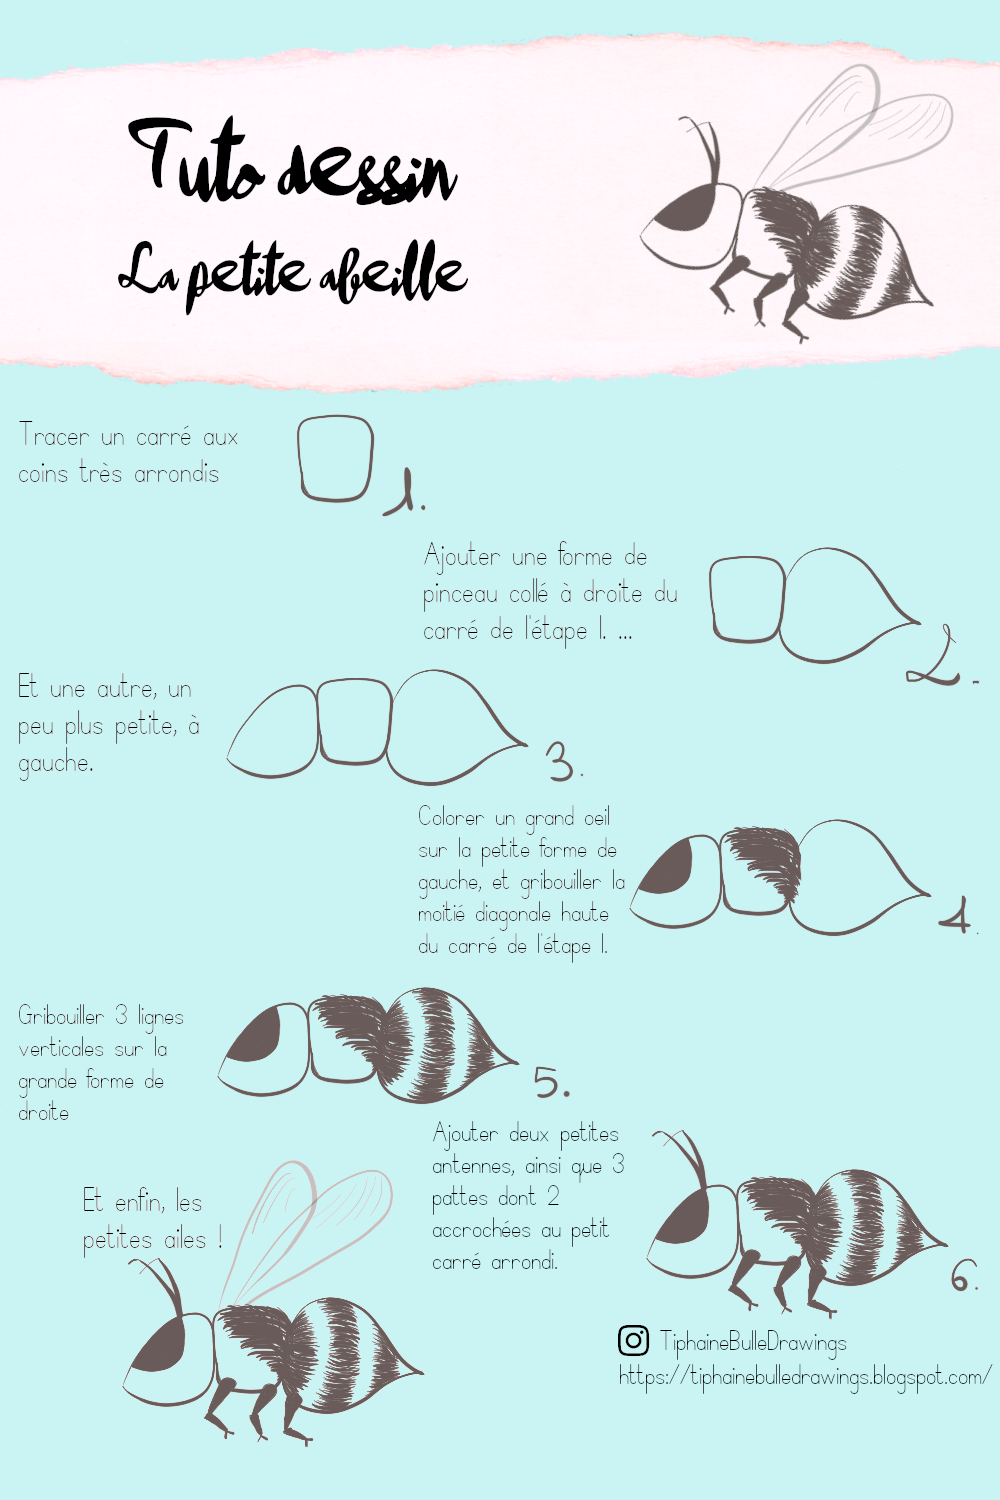 Tuto dessin
La petite abeille
Tracer un carré aux
coins très arrondis
1.
Ajouter une forme de
pinceau collé à droite du
carré de l'étape 1. ...
2.
Et une autre, un
peu plus petite, à
gauche.
3.
Colorer un grand oeil
sur la petite forme de
gauche, et gribouiller la
moitié diagonale haute
du carré de l'étape 1.
4.
Gribouiller 3 lignes
verticales sur la
grande forme de
droite
5.
Ajouter deux petites
antennes, ainsi que 3
pattes dont 2
accrochées au petit
carré arrondi.
6.
Et enfin, les
petites ailes !
TiphaineBulleDrawings
https://tiphainebulledrawings.blogspot.com/